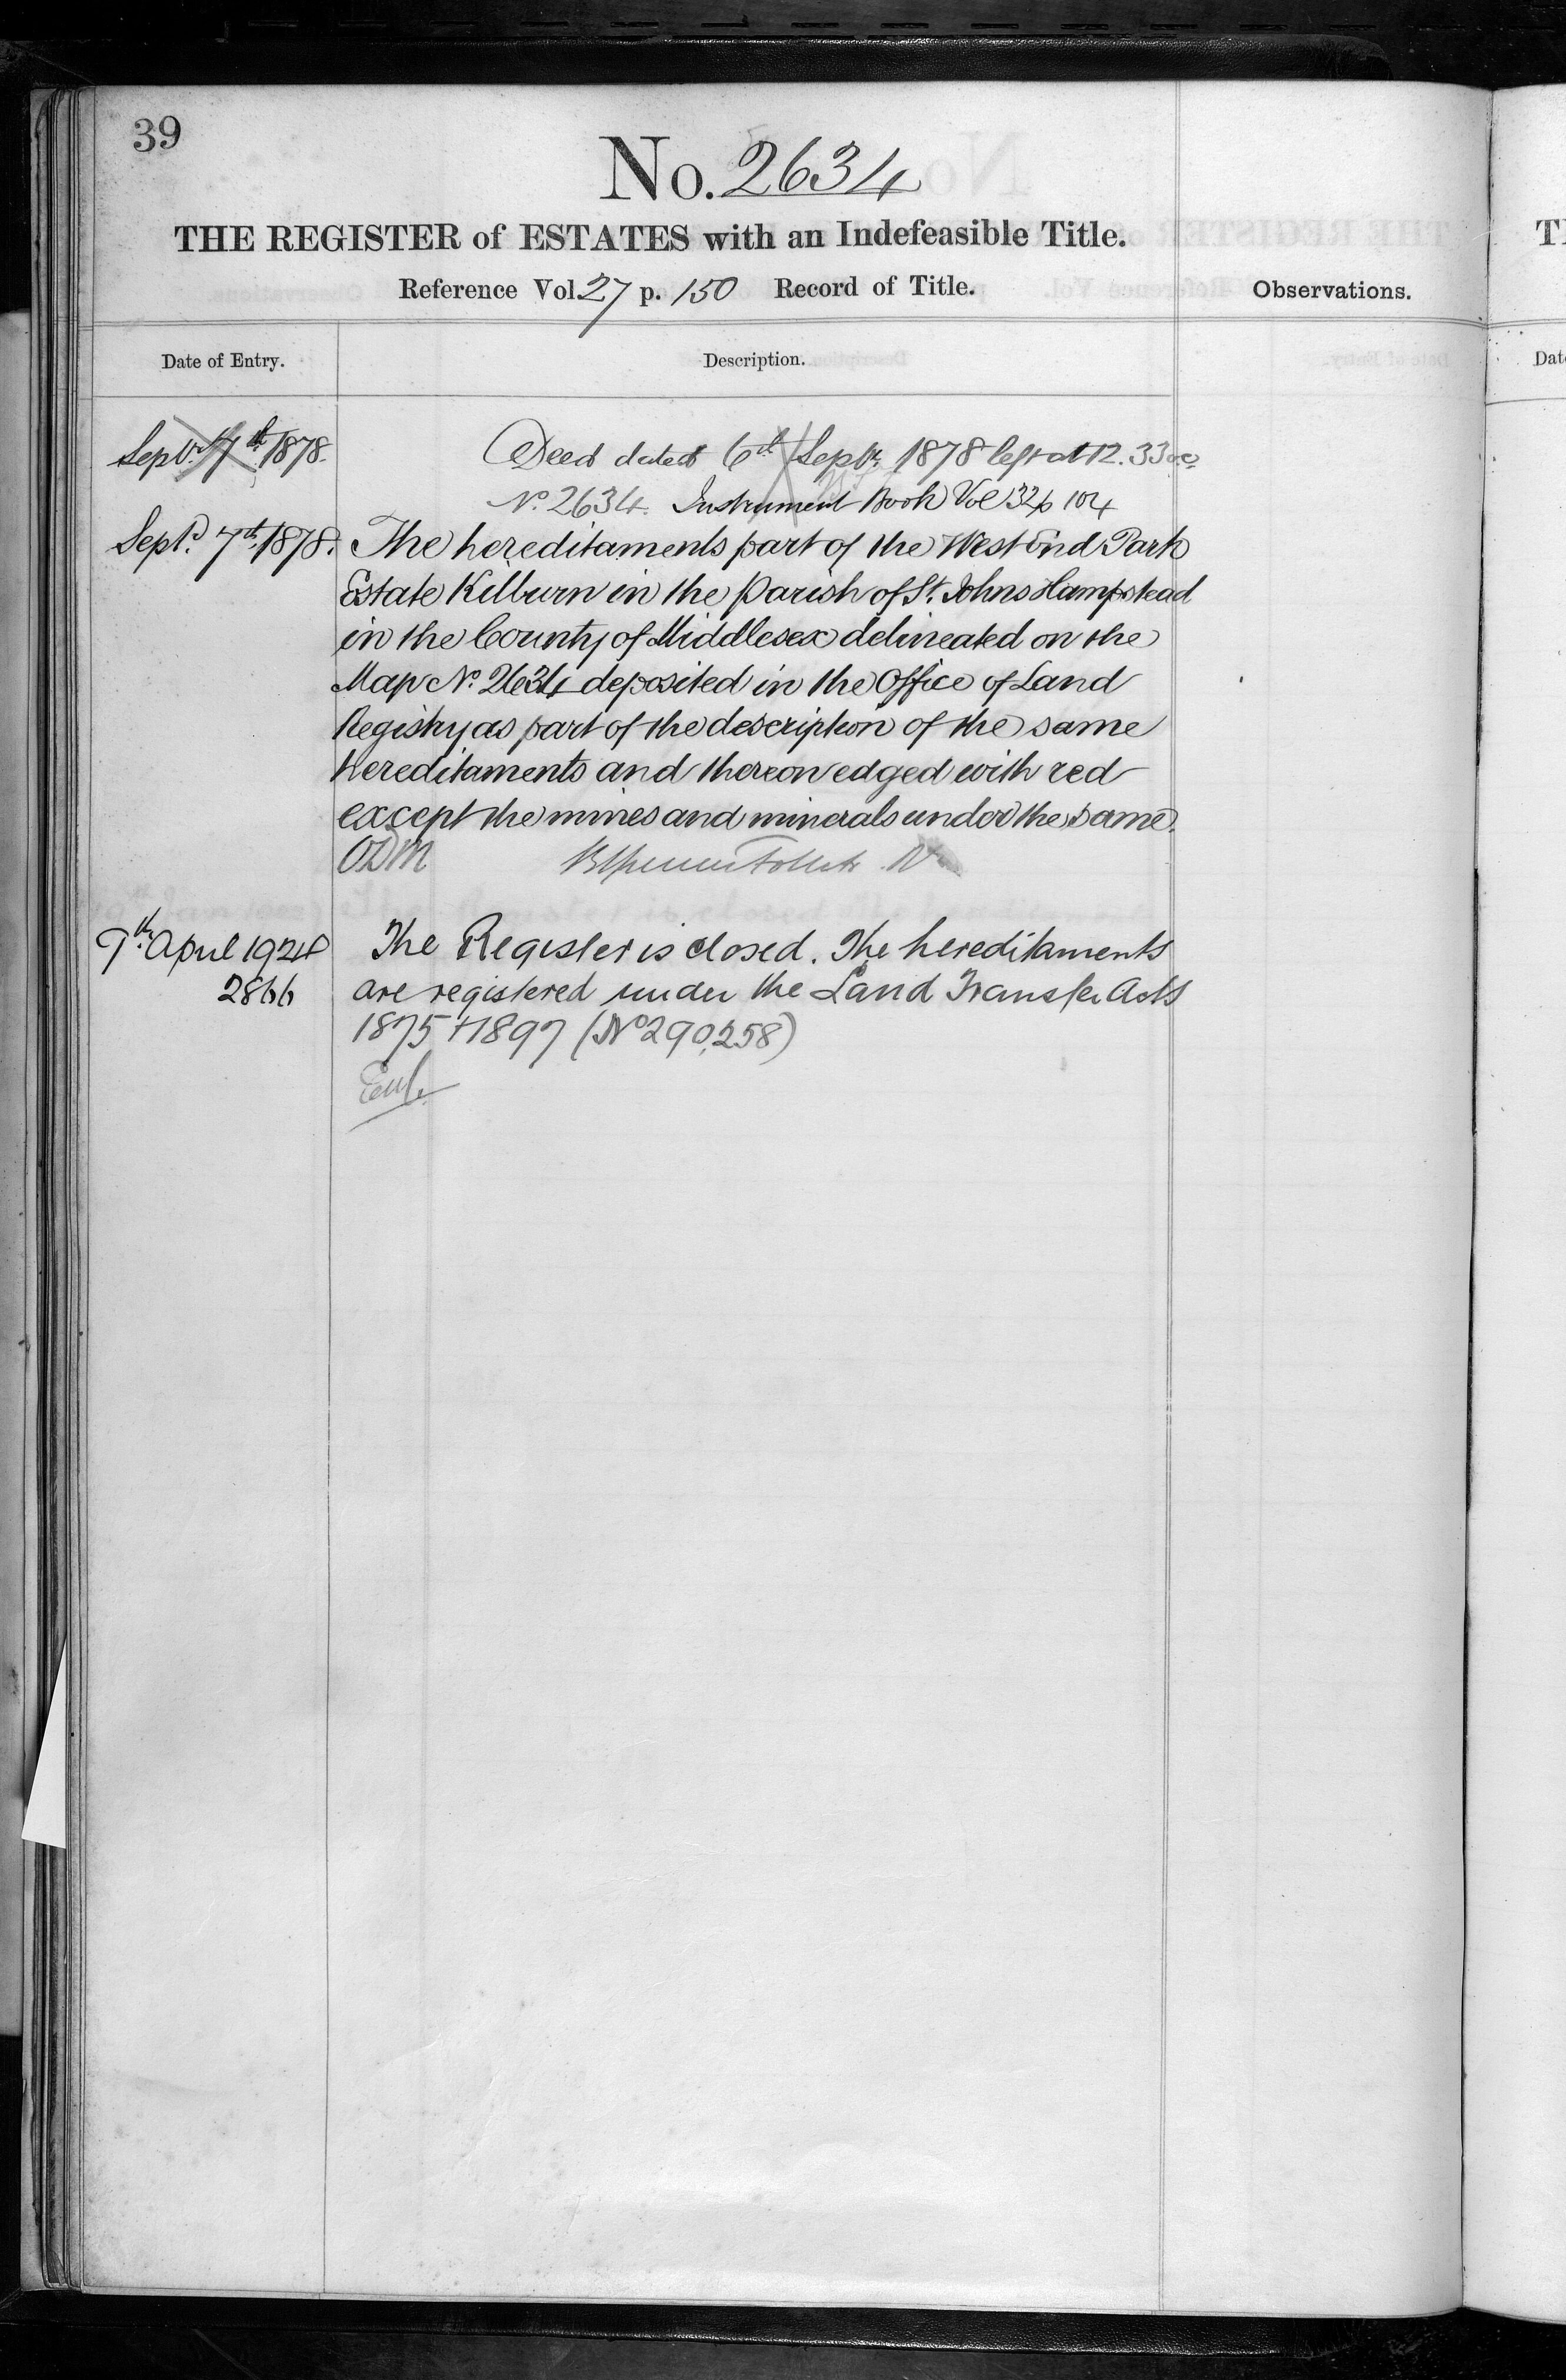 39
No. 2634
THE REGISTER of ESTATES with an Indefeasible Title.
Reference Vol. 27 p. 150 Record of Title.
Observations.
Date of Entry.
Description.
Septr. 7th 1878.
Deed dated 6th Septr. 1878 left at 12.33
No. 2634. Instrument Book Vol 32 p 104
Septr. 7th 1878.
The hereditaments part of the West End Park
Estate Kilburn in the Parish of St. Johns Hampstead
in the County of Middlesex delineated on the
Map No. 2634 deposited in the Office of Land
Registry as part of the description of the same
hereditaments and thereon edged with red
except the mines and minerals under the same.
ODM
9th April 1924
2866
The Register is closed. The hereditaments
are registered under the Land Transfer Acts
1875 + 1897 (No 290,258)